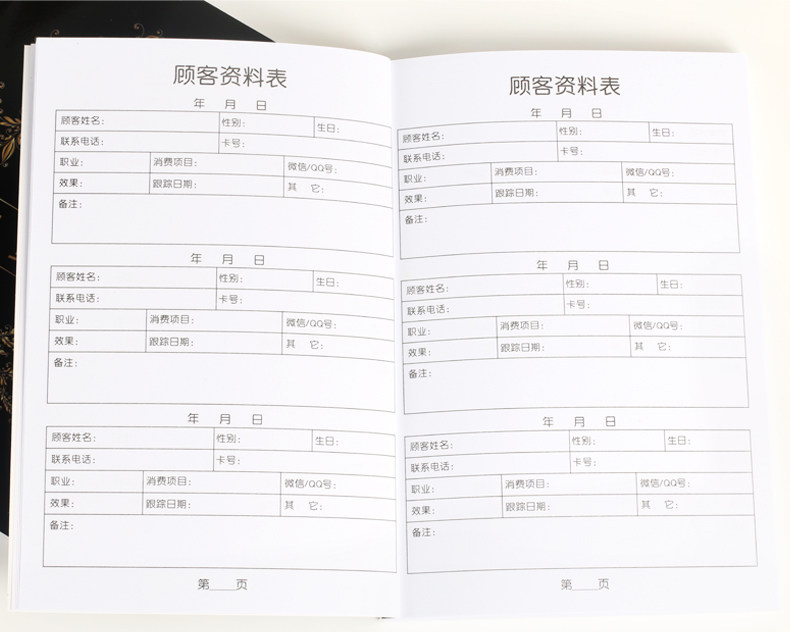 顾客资料表
年 月 日
顾客姓名: 性别: 生日:
联系电话: 卡号:
职业: 消费项目: 微信/QQ号:
效果: 跟踪日期: 其 它:
备注:
年 月 日
顾客姓名: 性别: 生日:
联系电话: 卡号:
职业: 消费项目: 微信/QQ号:
效果: 跟踪日期: 其 它:
备注:
年 月 日
顾客姓名: 性别: 生日:
联系电话: 卡号:
职业: 消费项目: 微信/QQ号:
效果: 跟踪日期: 其 它:
备注:
第____页
顾客资料表
年 月 日
顾客姓名: 性别: 生日:
联系电话: 卡号:
职业: 消费项目: 微信/QQ号:
效果: 跟踪日期: 其 它:
备注:
年 月 日
顾客姓名: 性别: 生日:
联系电话: 卡号:
职业: 消费项目: 微信/QQ号:
效果: 跟踪日期: 其 它:
备注:
年 月 日
顾客姓名: 性别: 生日:
联系电话: 卡号:
职业: 消费项目: 微信/QQ号:
效果: 跟踪日期: 其 它:
备注:
第____页